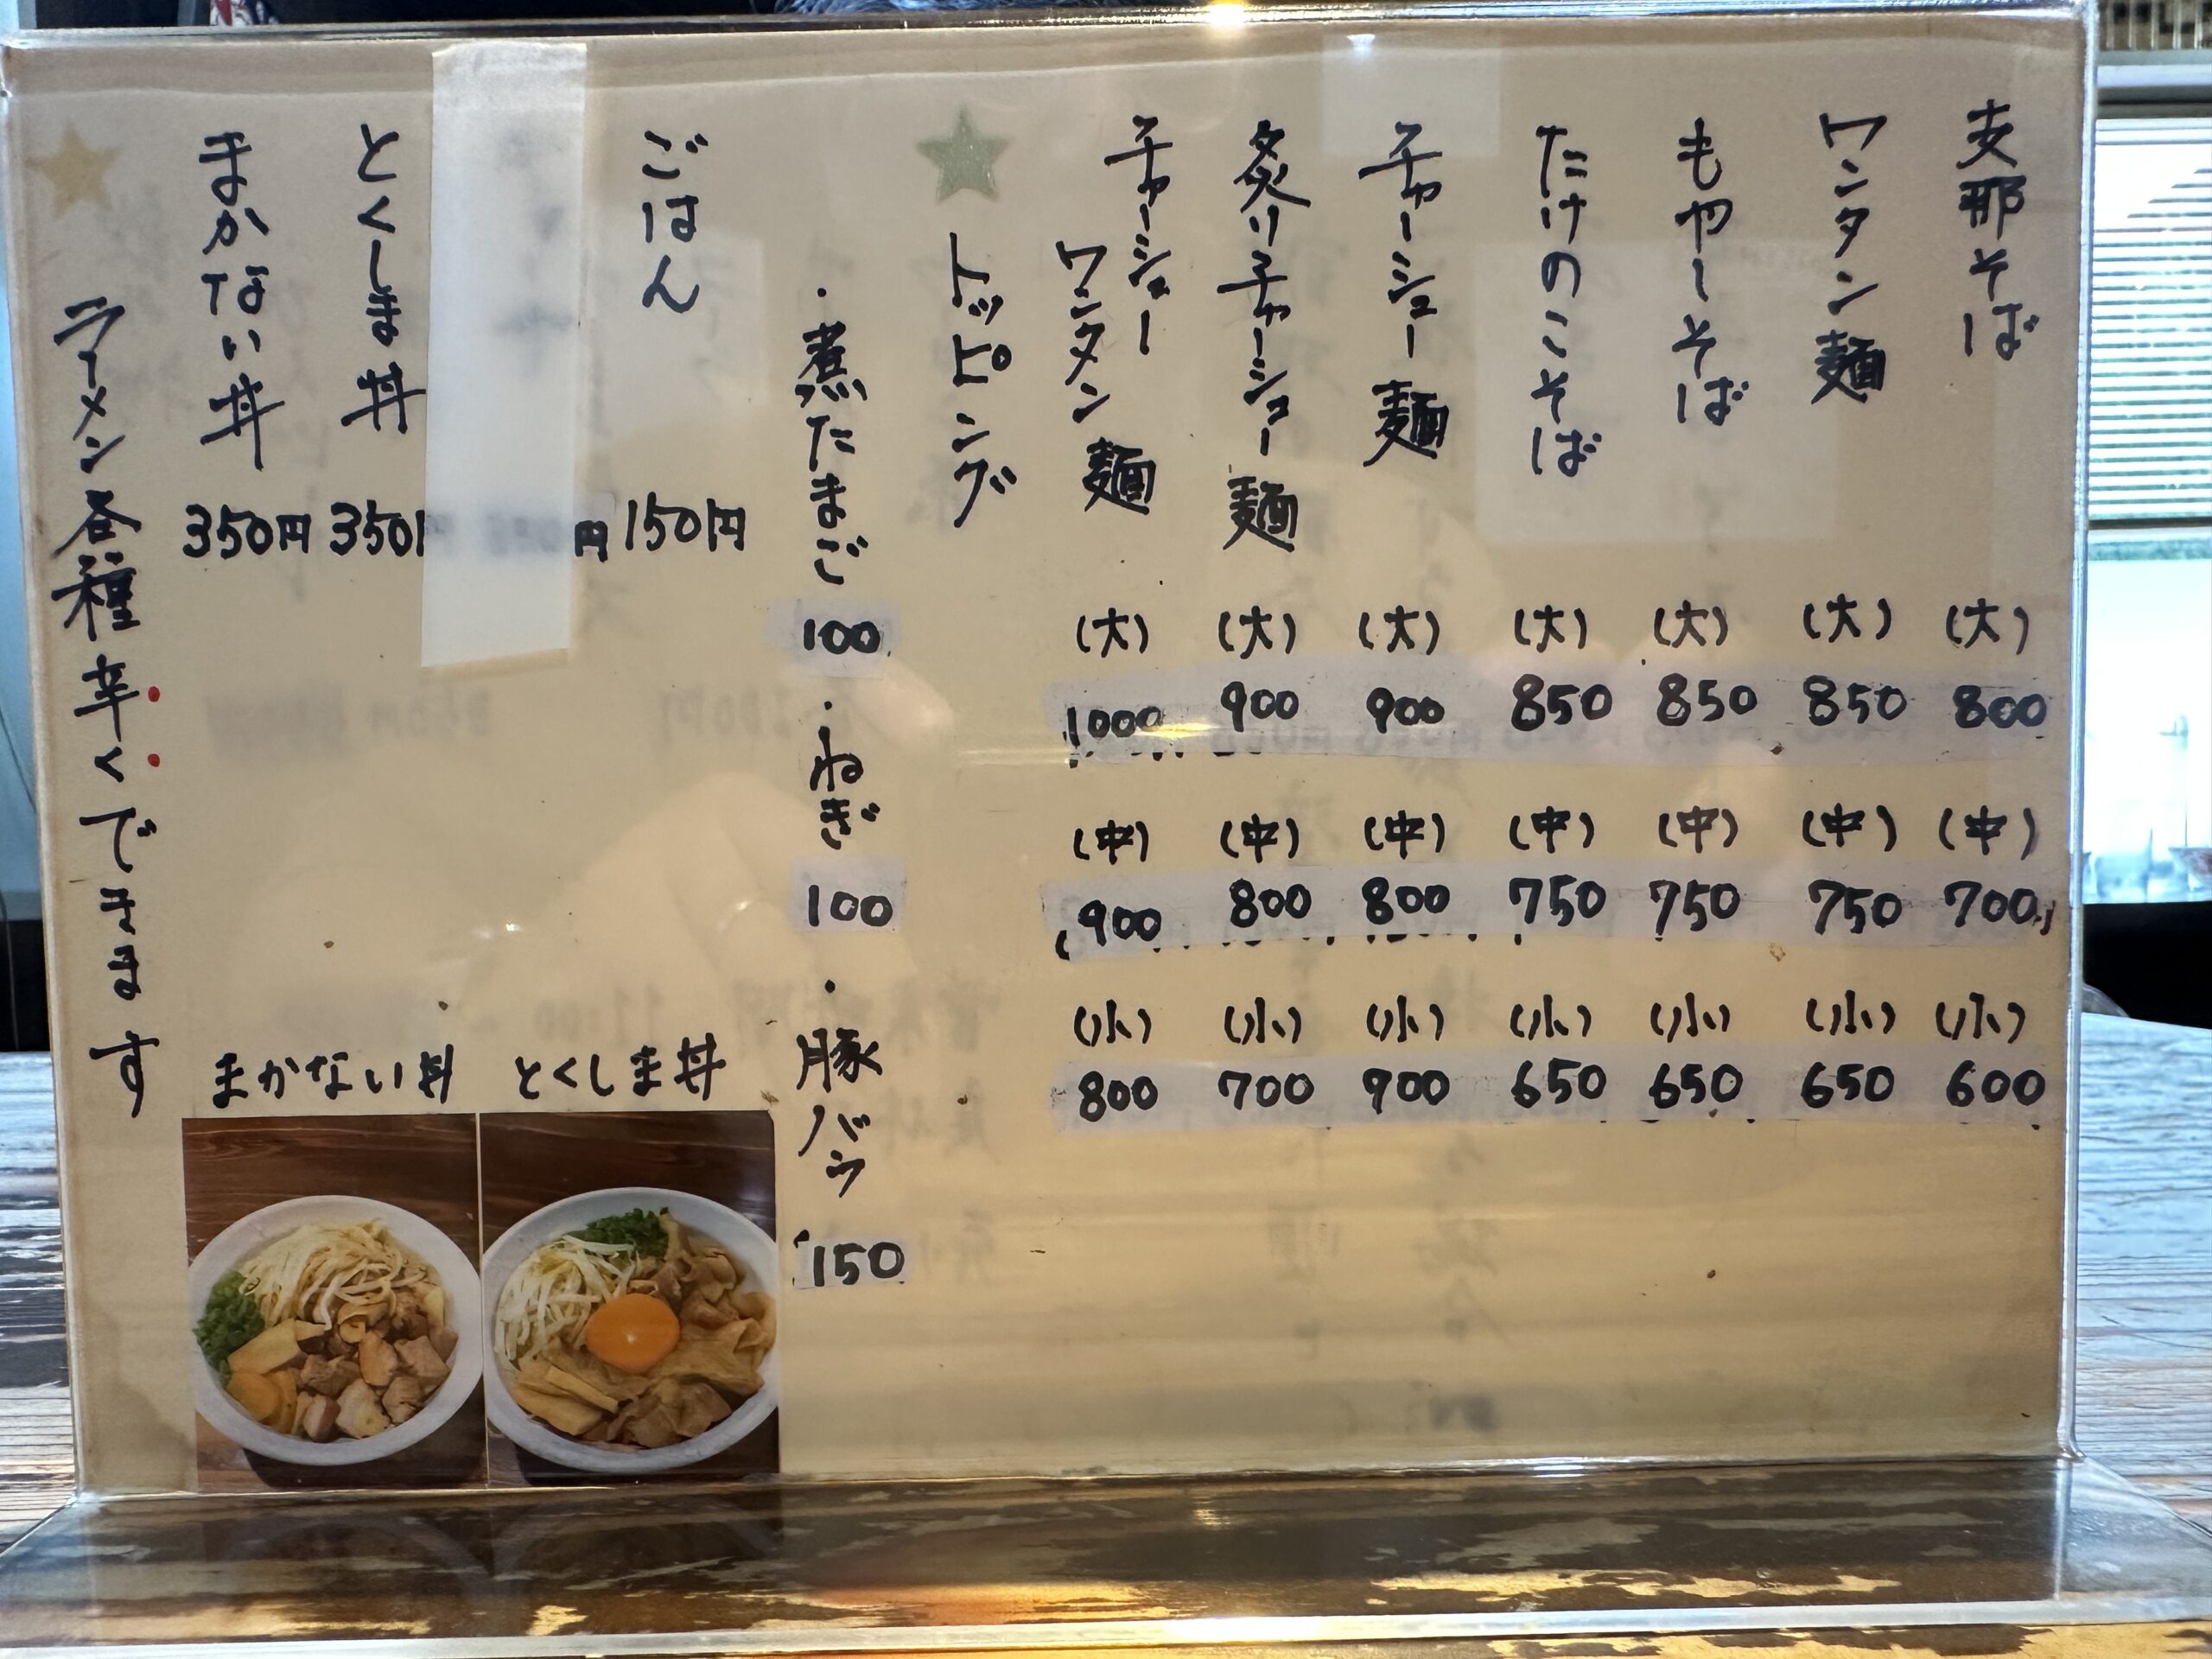 支那そば (大) 800 (中) 700 (小) 600
ワンタン麺 (大) 850 (中) 750 (小) 650
もやしそば (大) 850 (中) 750 (小) 650
たけのこそば (大) 850 (中) 750 (小) 650
チャーシュー麺 (大) 900 (中) 800 (小) 700
炙りチャーシュー麺 (大) 900 (中) 800 (小) 700
チャーシュー
ワンタン麺 (大) 1000 (中) 900 (小) 800
トッピング
・煮たまご 100 ・ねぎ 100 ・豚バラ 150
ごはん 150円
円
とくしま丼 350円
まかない丼 350円
ラーメン各種辛くできます
とくしま丼
まかない丼